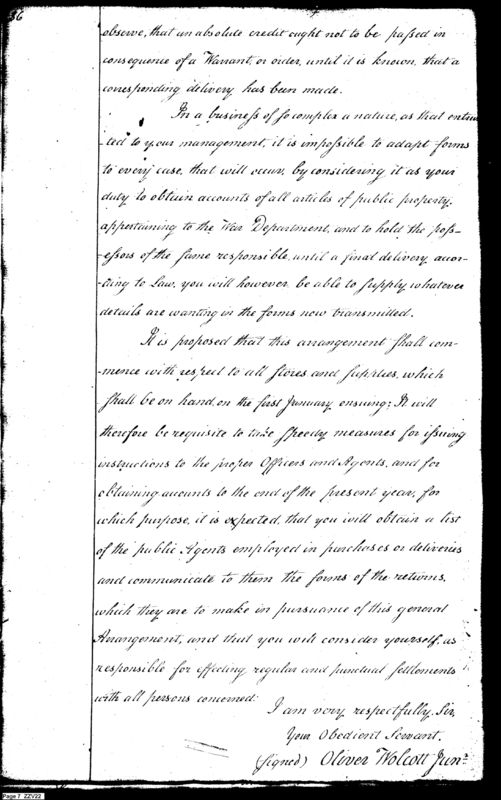 36
observe, that an absolute credit ought not to be passed in
consequence of a Warrant, or order, until it is known, that a
corresponding delivery has been made.
In a business of so complex a nature, as that entrus
ted to your management, it is impossible to adapt forms
to every case, that will occur, by considering it as your
duty to obtain accounts of all articles of public property,
appertaining to the War Department, and to hold the poss-
-essors of the same responsible, until a final delivery, accor-
-ding to Law, you will however, be able to supply whatever
details are wanting in the forms now transmitted.
It is proposed that this arrangement shall com-
-mence with respect to all Stores and supplies, which
shall be on hand, on the first January ensuing; It will
therefore be requisite to take speedy measures for issuing
instructions to the proper Officers and Agents, and for
obtaining accounts to the end of the present year, for
which purpose, it is expected, that you will obtain a list
of the public Agents employed in purchases or deliveries
and communicate to them the forms of the returns,
which they are to make in pursuance of this general
Arrangement, and that you will consider yourself, as
responsible for effecting regular and punctual settlements
with all persons concerned.
I am very respectfully, Sir,
Your Obedient Servant.
(signed) Oliver Wolcott Junr.
Page 7 ZZV22